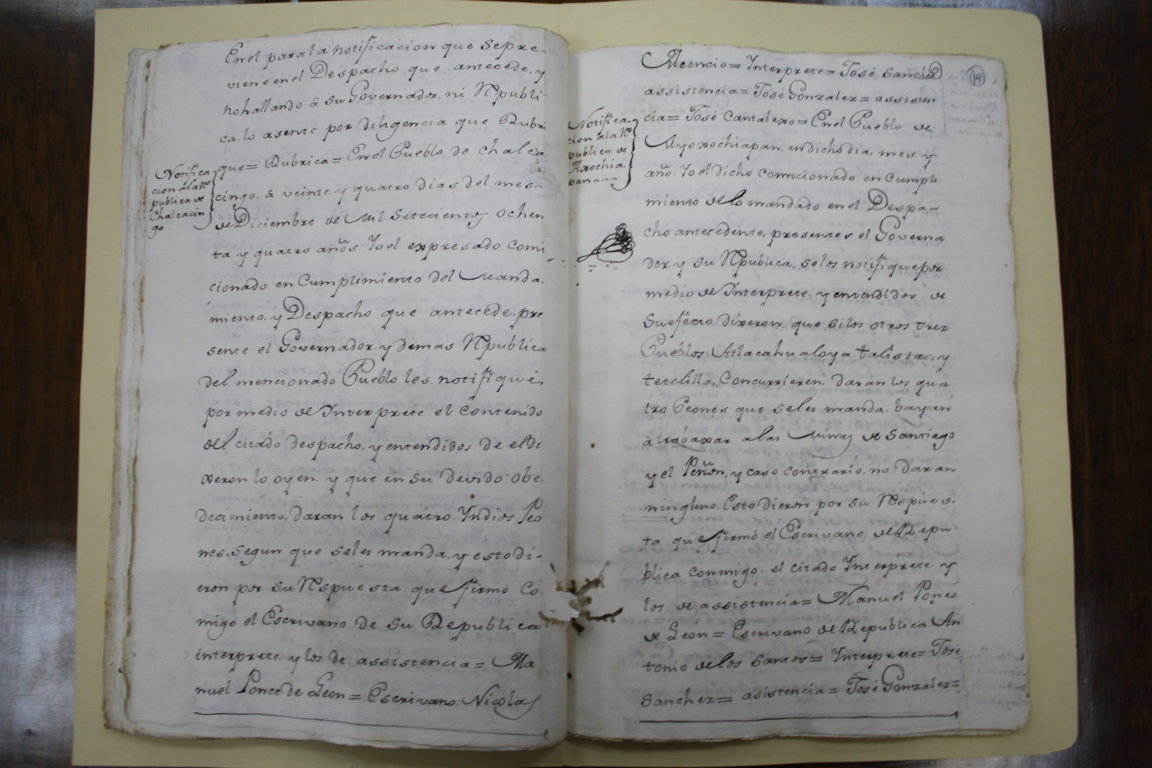 En el para la notificacion que se pre-
viene en el Despacho que antecede, y
no hallando â su Governador, ni Rpubli-
ca lo asente por diligencia que Rubri
que = Rubrica = En el Pueblo de chalca
Notifica
cion â la Rª
publica de
Chalcacin
go
cingo, â veinte y quatro dias del mes
de Diciembre de Mil Setecientos Ochen
ta y quatro años: Yo el expresado Comi
cionado, en Cumplimiento del Manda.
miento, y Despacho que antecede, pre
sente el Governador, y demas Rpublica
del mencionado Pueblo les notifique,
por medio de Interprete el contenido
del citado Despacho, y entendidos de el di
xeron lo oyen, y que en su devido obe
decimiento, daran los quatro Indios Peo
nes, segun que se les manda, y esto di-
eron por su Rspuesta que firmó Co
migo el Escrivano de su Republica
interprete y los de assistencia = Ma
nuel Ponce de Leon = Escrivano: Nicolas
19
Acencio = Interprete = José Sanchez
assistencia = José Gonzalez = assisten
cia = José Cantalexo = En el Pueblo de
Notifica
cion â la Rª
publica de
Axochia
pan
Ayoxochiapan, en dicho dia, mes, y
año: Yo el dicho comicionado en Cumpli
miento de lo mandado en el Despa-
cho antecedente, presentes el Governa
dor y su Rpublica, se los notifiqué por
medio de Interprete, y entendidos de
su efecto dixeron, que si los otros tres
Pueblos: Atlacahualoya, talistac, y
tetelilla, Concurrieren, daran los qua
tro Peones que se les manda, bayan
â trabaxar a las Minas de Santiago
y el Peñon, y caso contrario, no daran
ninguno, Esto dieron por su Rspues-
ta que firmó el Escrivano de Repu
blica conmigo, el citado Interprete, y
los de assistencia = Manuel Ponce
de Leon = Escrivano de Republica An
tonio de los Santos = Interprete = José
Sanchez = assistencia = José Gonzalez =